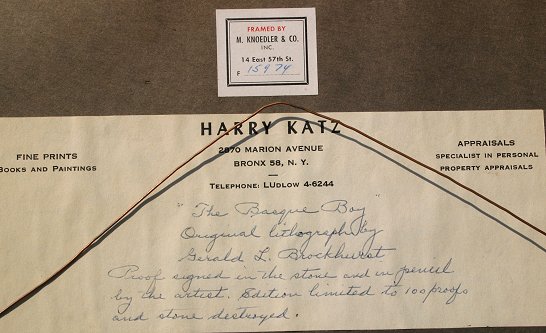 FRAMED BY
M. KNOEDLER & CO.
INC.
14 East 57th St.
F 15974
HARRY KATZ
2870 MARION AVENUE
BRONX 58, N. Y.
TELEPHONE: LUDLOW 4-6244
FINE PRINTS
BOOKS AND PAINTINGS
APPRAISALS
SPECIALIST IN PERSONAL
PROPERTY APPRAISALS
"The Basque Boy"
Original lithograph by
Gerald L. Brockhurst
Proof signed in the stone and in pencil
by the artist. Edition limited to 100 proofs
and stone destroyed.